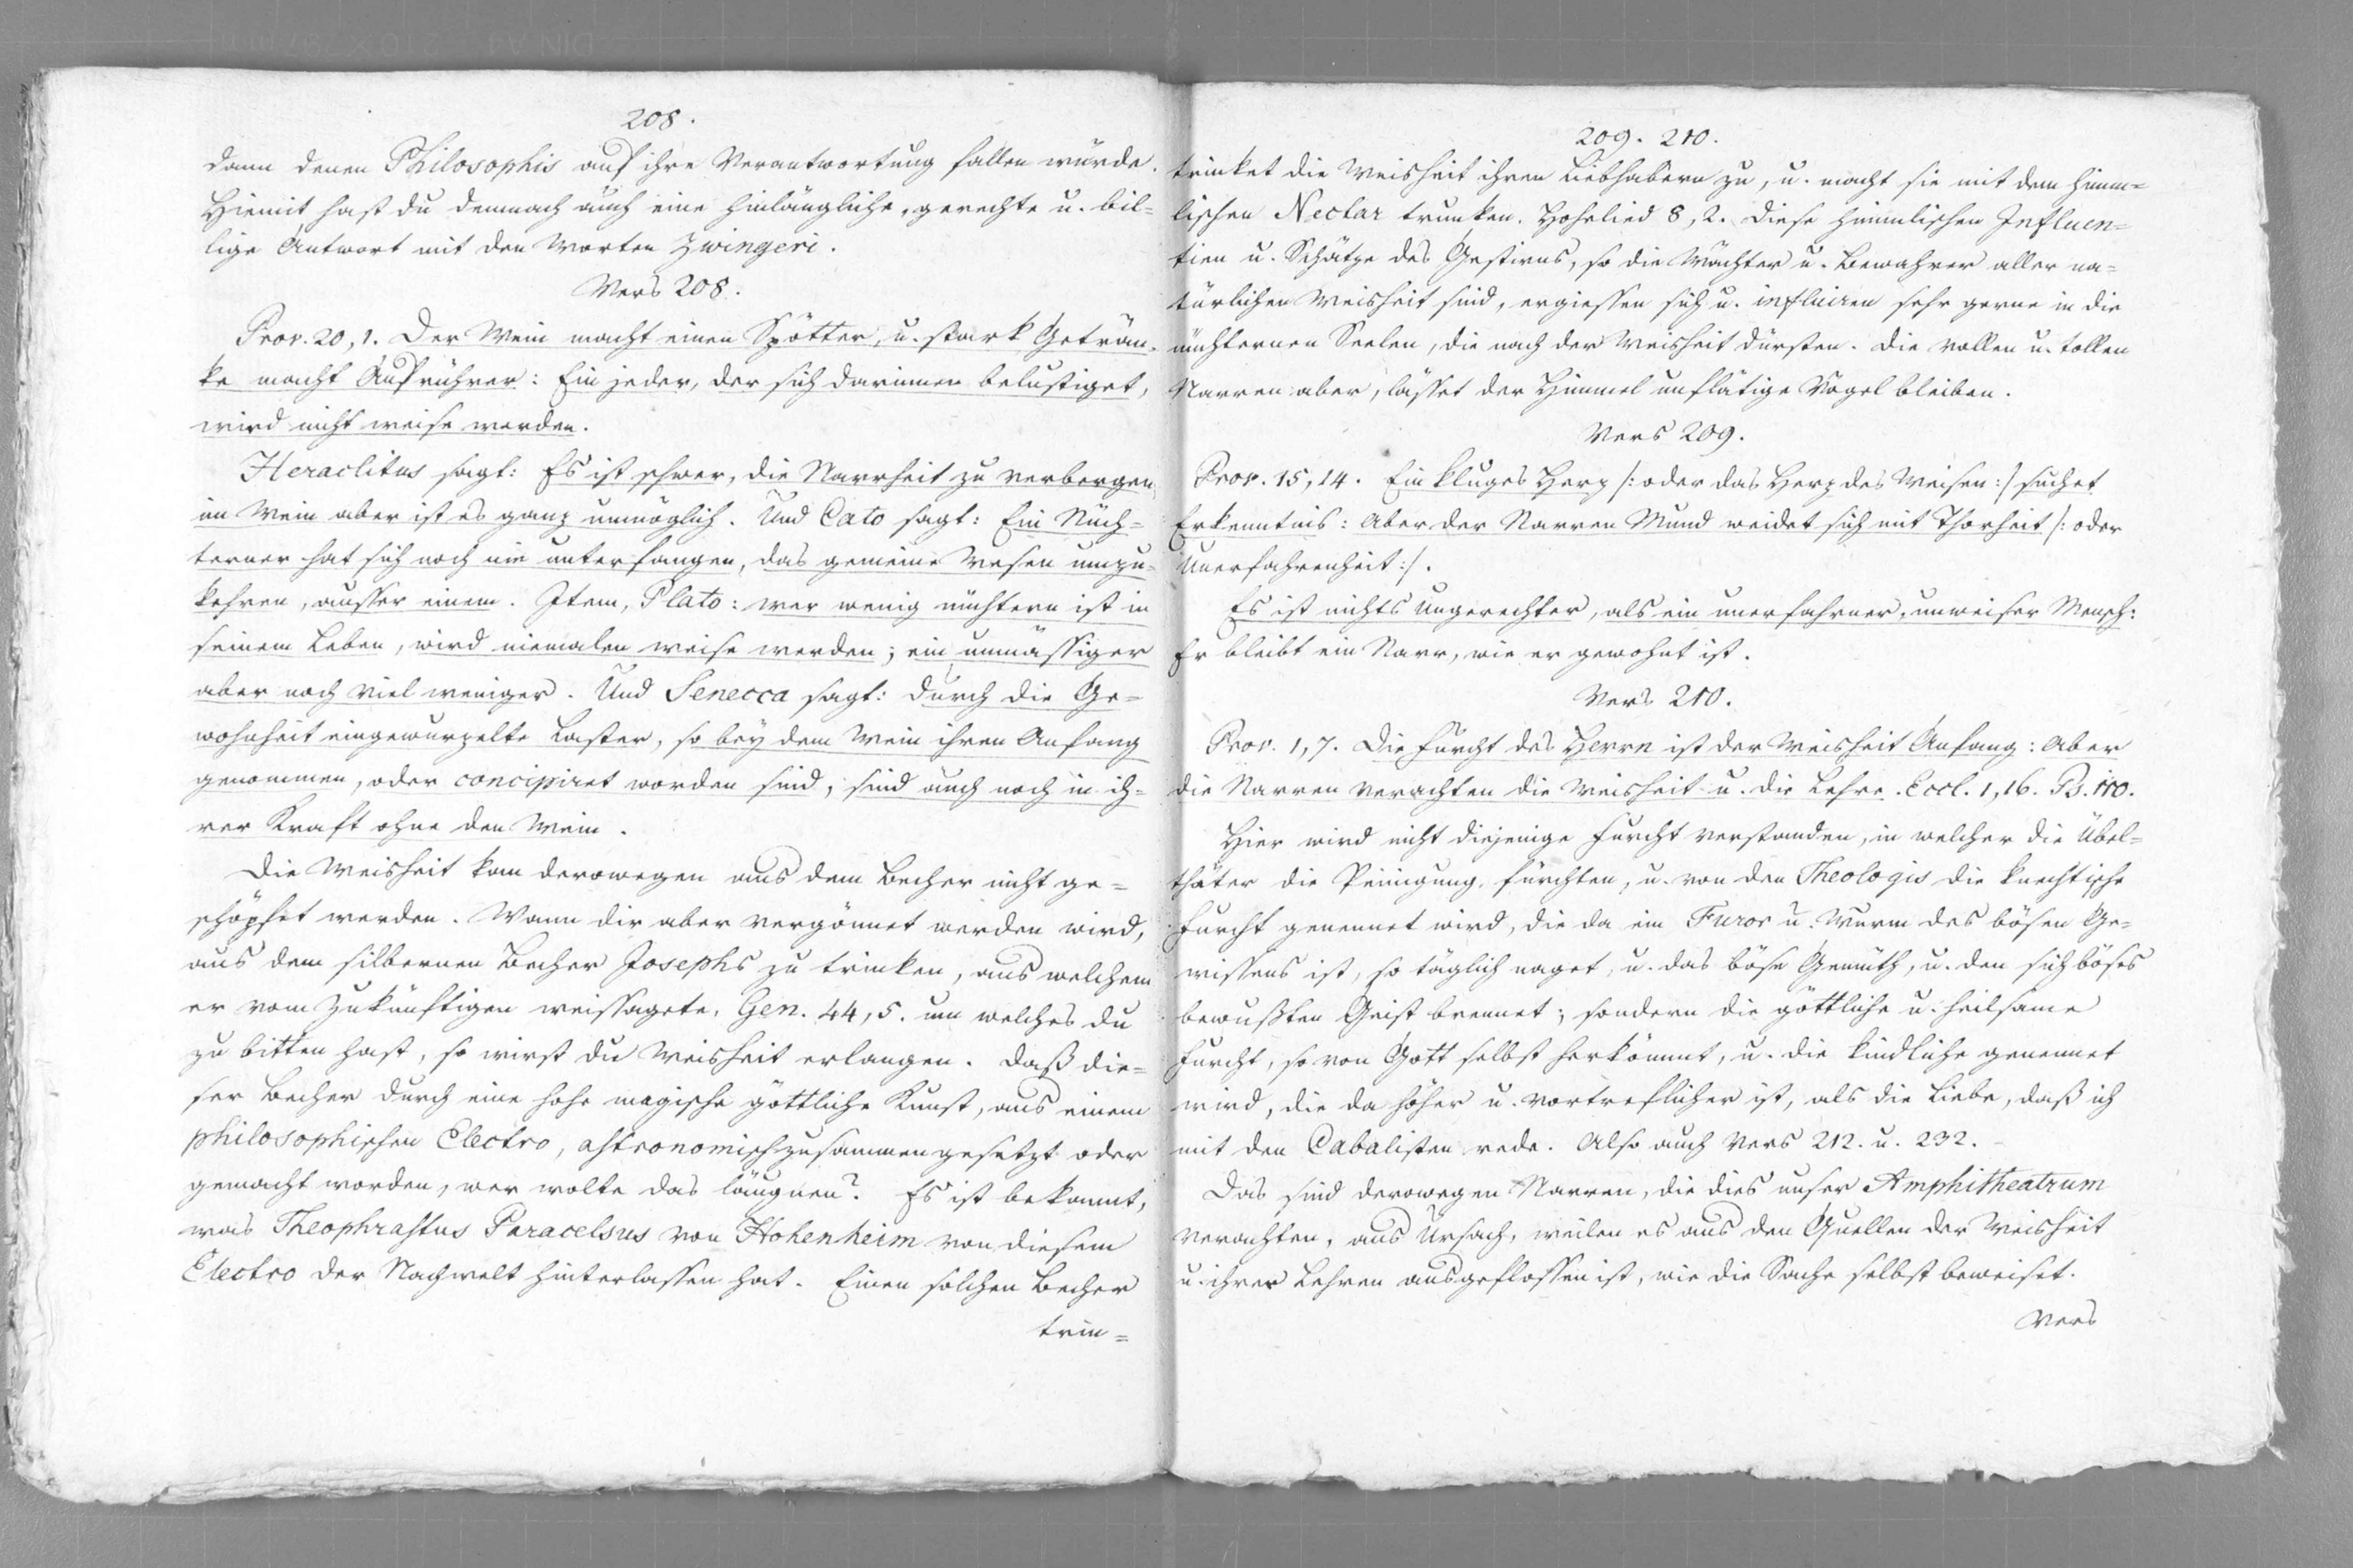 208.
dann denen Philosophis auf ihre Verantwortung fallen würde.
Hiemit hast du demnach auch eine hinlängliche, gerechte u. bil=
lige Antwort mit den Worten Zwingeri.
Vers 208.
Prov. 20, 1. Der Wein macht einen Spötter, u. stark Geträn-
ke macht Aufrührer: Ein jeder, der sich darinnen belustiget,
wird nicht weise werden.
Heraclitus sagt: Es ist schwer, die Narrheit zu verbergen,
im Wein aber ist es ganz unmöglich. Und Cato sagt: Ein Nüch=
terner hat sich noch nie unterfangen, das gemeine Wesen umzu=
kehren, ausser einem. Item, Plato: wer wenig nüchtern ist in
seinem Leben, wird niemalen weise werden; ein unmässiger
aber noch viel weniger. Und Senecca sagt: durch die Ge=
wohnheit eingewurzelte Laster, so bey dem Wein ihren Anfang
genommen, oder concipiret worden sind, sind auch noch in ih=
rer Kraft ohne den Wein.
Die Weisheit kan derowegen aus dem Becher nicht ge=
schöpfet werden. Wann dir aber vergönnet werden wird,
aus dem silbernen Becher Josephs zu trinken, aus welchem
er vom Zukünftigen weissagete, Gen. 44, 5. um welches du
zu bitten hast, so wirst du Weisheit erlangen. Daß die=
ser Becher durch eine hohe magische göttliche Kunst, aus einem
philosophischen Electro, astronomisch zusammengesetzt oder
gemacht worden, wer wolte das läugnen? Es ist bekannt,
was Theophrastus Paracelsus von Hohenheim von diesem
Electro der Nachwelt hinterlassen hat. Einen solchen Becher
trin=
209. 210.
trinket die Weisheit ihren Liebhabern zu, u. macht sie mit dem himm=
lischen Nectar trunken. Hohelied 8, 2. Diese himmlischen Influen=
tien u. Schätze des Gestirns, so die Wächter u. Bewahrer aller na=
türlichen Weisheit sind, ergiessen sich u. influiren sehr gerne in die
nüchternen Seelen, die nach der Weisheit dürsten. Die vollen u. tollen
Narren aber, lässet der Himmel unflätige Vögel bleiben.
Vers 209.
Prov. 15, 14. Ein kluges Herz /: oder das Herz des Weisen :/ suchet
Erkenntnis: Aber der Narren Mund weidet sich mit Thorheit /: oder
Unerfahrenheit :/.
Es ist nichts ungerechter, als ein unerfahrner, unweiser Mensch:
Er bleibt ein Narr, wie er gewohnt ist.
Vers 210.
Prov. 1, 7. Die Furcht des Herrn ist der Weisheit Anfang: Aber
die Narren verachten die Weisheit u. die Lehre. Eccl. 1, 16. Ps. 110.
Hier wird nicht diejenige Furcht verstanden, in welcher die Übel=
thäter die Peinigung fürchten, u. von den Theologis die knechtische
Furcht genennet wird, die da ein Furor u. Wurm des bösen Ge=
wissens ist, so täglich naget, u. das böse Gemüth, u. den sich böses
bewußten Geist brennet; sondern die göttliche u. heilsame
Furcht, so von Gott selbst herkömmt, u. die kindliche genennet
wird, die da höher u. vortreflicher ist, als die Liebe, daß ich
mit den Cabalisten rede. Also auch Vers 212. u. 232.
Das sind derowegen Narren, die dies unser Amphitheatrum
verachten, aus Ursach, weilen es aus den Quellen der Weisheit
u. ihrer Lehren ausgeflossen ist, wie die Sache selbst beweiset.
Vers